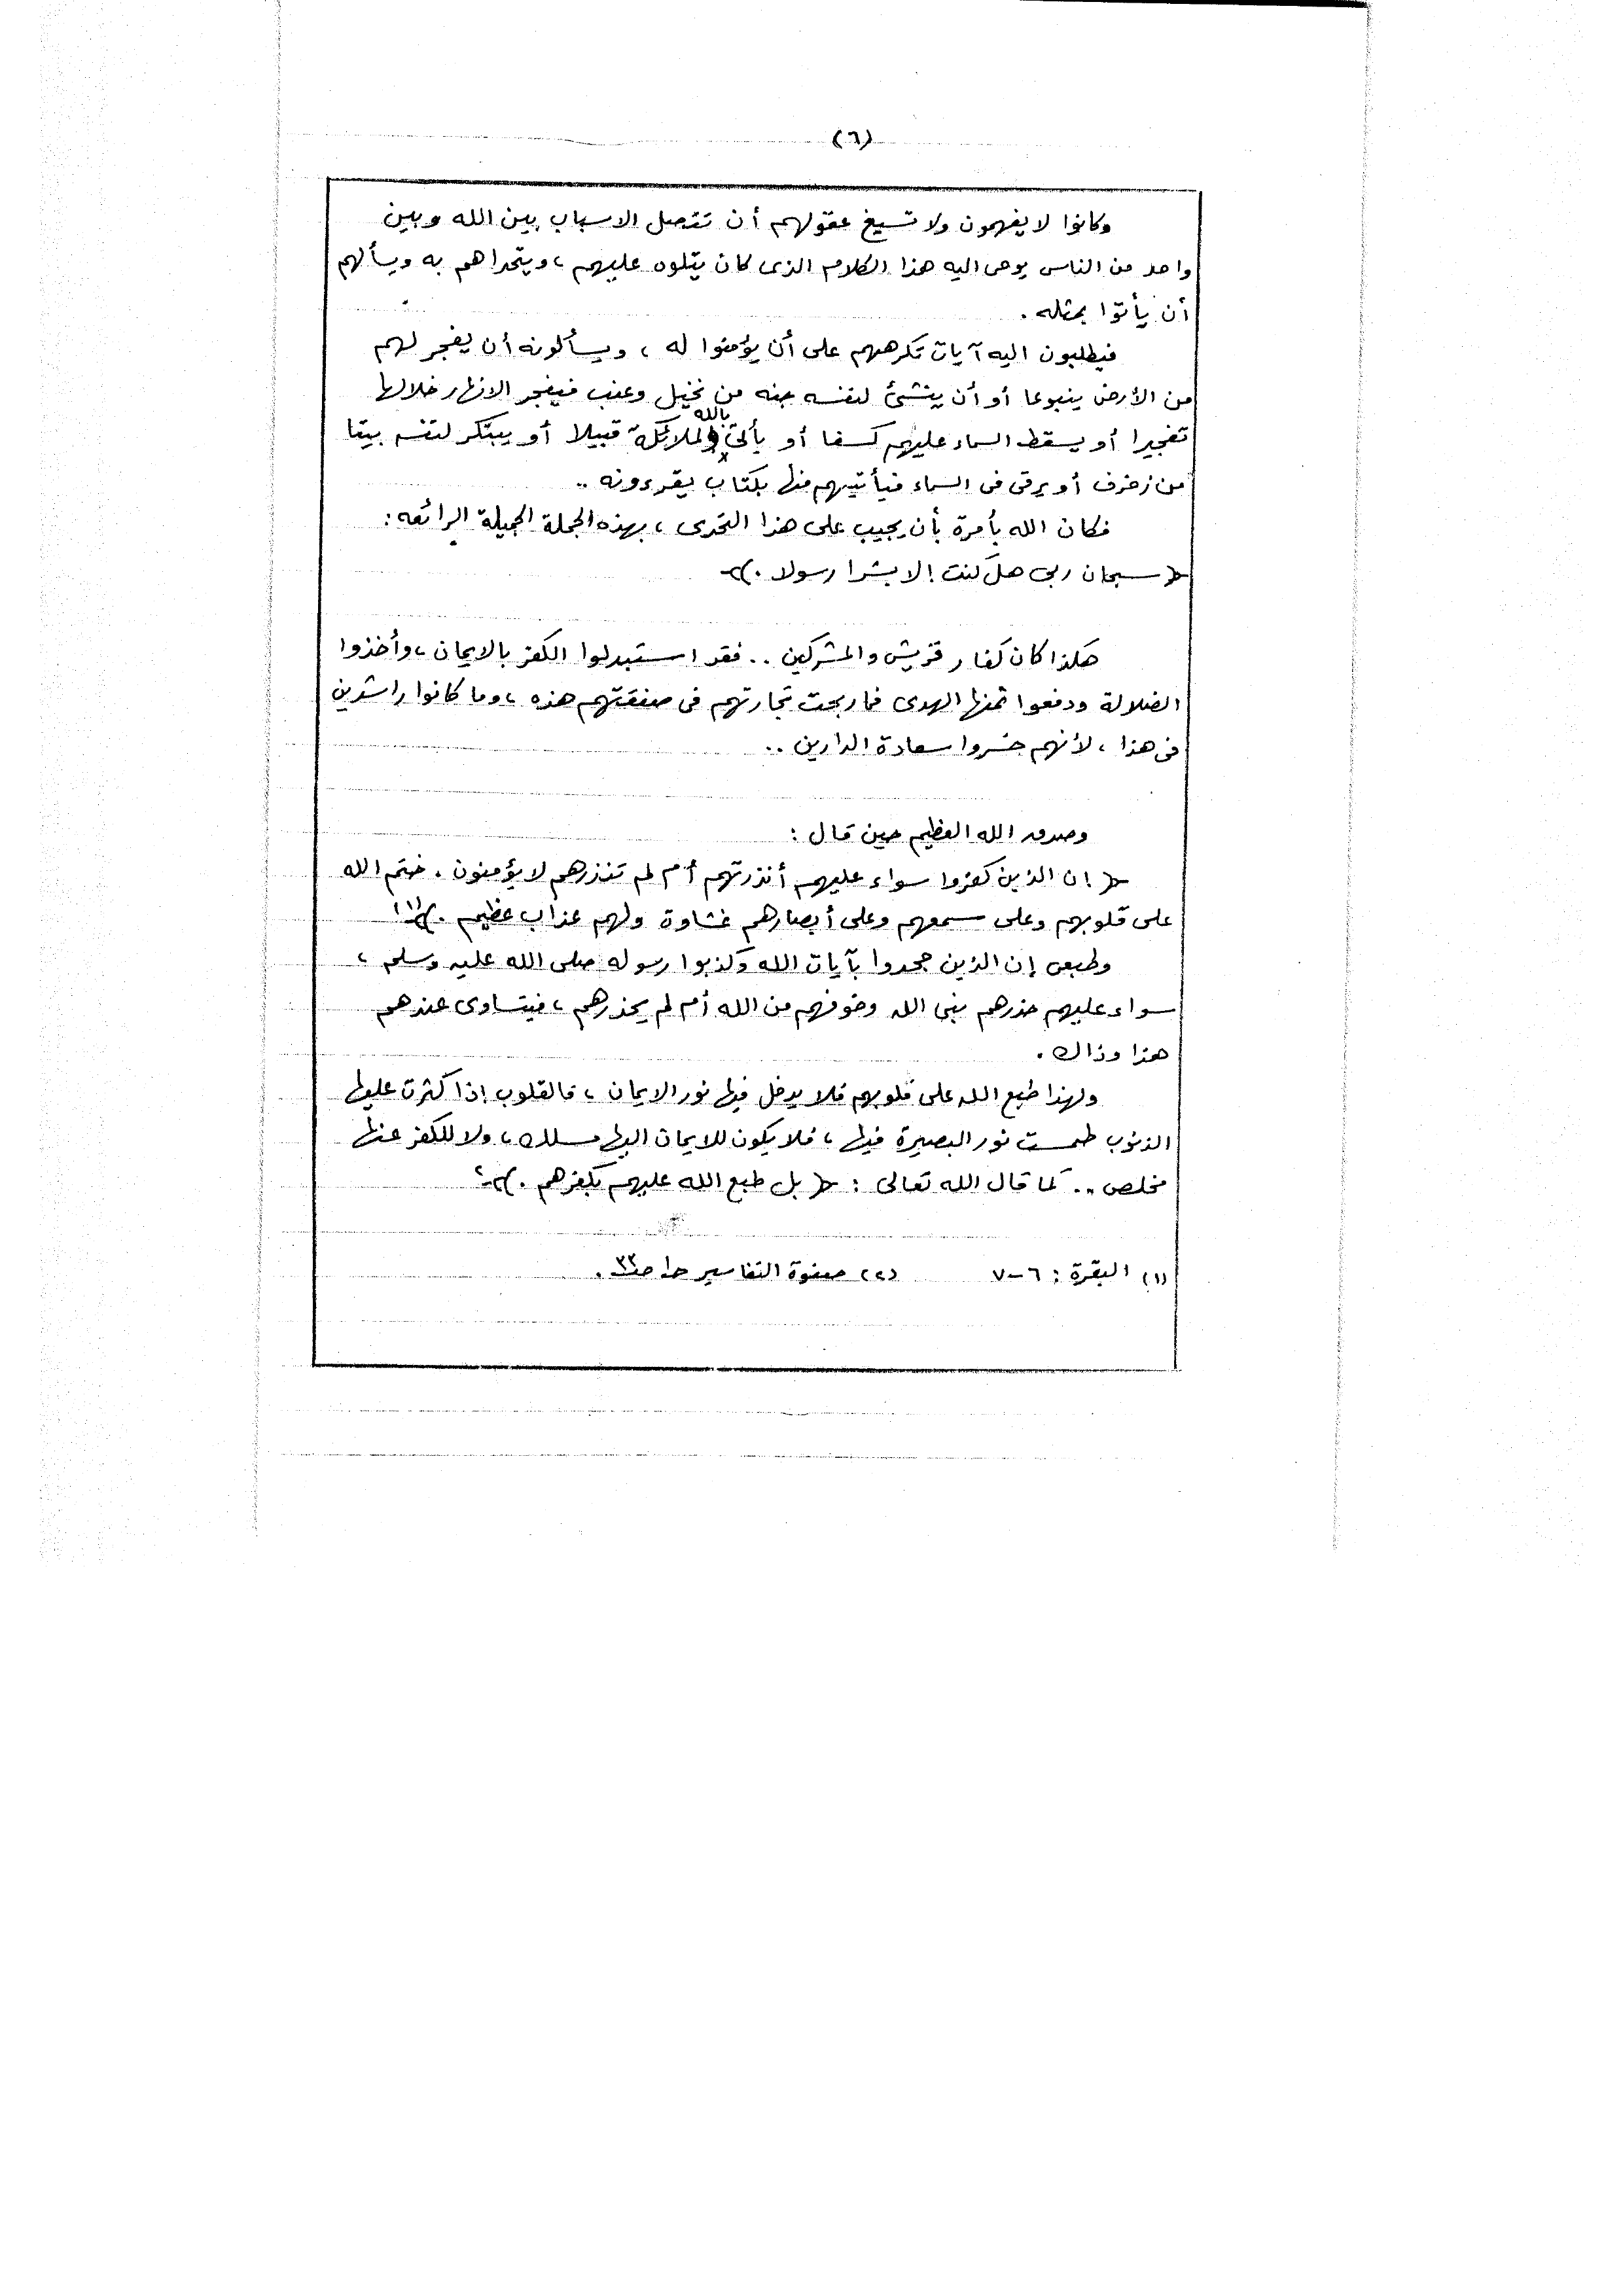 (٦)
وكانوا لا يفهمون ولا تسيغ عقولهم أن تتصل الاسباب بين الله وبين
واحد من الناس يوحى اليه هذا الكلام الذى كان يتلوه عليهم ، ويتحداهم به ويسألهم
أن يأتوا بمثله .
فيطلبون اليه آيات تكرههم على أن يؤمنوا له ، ويسألونه أن يفجر لهم
من الأرض ينبوعا أو أن ينشئ لنفسه جنه من نخيل وعنب فيفجر الانهار خلالها
تفجيرا أو يسقط السماء عليهم كسفا أو يأتى بالله والملائكة قبيلا أو يبتكر لنفسه بيتا
من زخرف أو يرقى فى السماء فيأتيهم منها بكتاب يقرءونه ..
فكان الله يأمرة بأن يجيب على هذا التحدى ، بهذه الجملة الجميلة الرائعه :
﴿ سبحان ربى هل كنت إلا بشرا رسولا . ﴾
هكذا كان كفار قريش والمشركين .. فقد استبدلوا الكفر بالايمان ، وأخذوا
الضلالة ودفعوا ثمنها الهدى فما ربحت تجارتهم فى صفقتهم هذه ، وما كانوا راشدين
فى هذا ، لأنهم خسروا سعادة الدارين ..
وصدق الله العظيم حين قال :
﴿ إن الذين كفروا سواء عليهم أنذرتهم أم لم تنذرهم لا يؤمنون . ختم الله
على قلوبهم وعلى سمعهم وعلى أبصارهم غشاوة ولهم عذاب عظيم . ﴾(١)
وطبعى إن الذين جحدوا بآيات الله وكذبوا رسوله صلى الله عليه وسلم ،
سواء عليهم حذرهم نبى الله وخوفهم من الله أم لم يحذرهم ، فيتساوى عندهم
هذا وذاك .
ولهذا طبع الله على قلوبهم فلا يدخل فيها نور الايمان ، فالقلوب إذا كثرت عليها
الذنوب طمست نور البصيرة فيها ، فلا يكون للايمان اليها مسلك ، ولا للكفر عنها
مخلص .. كما قال الله تعالى : ﴿ بل طبع الله عليهم بكفرهم . ﴾٢
(١) البقرة : ٦-٧ (٢) صفوة التفاسير ح١ صـ٣٣ .